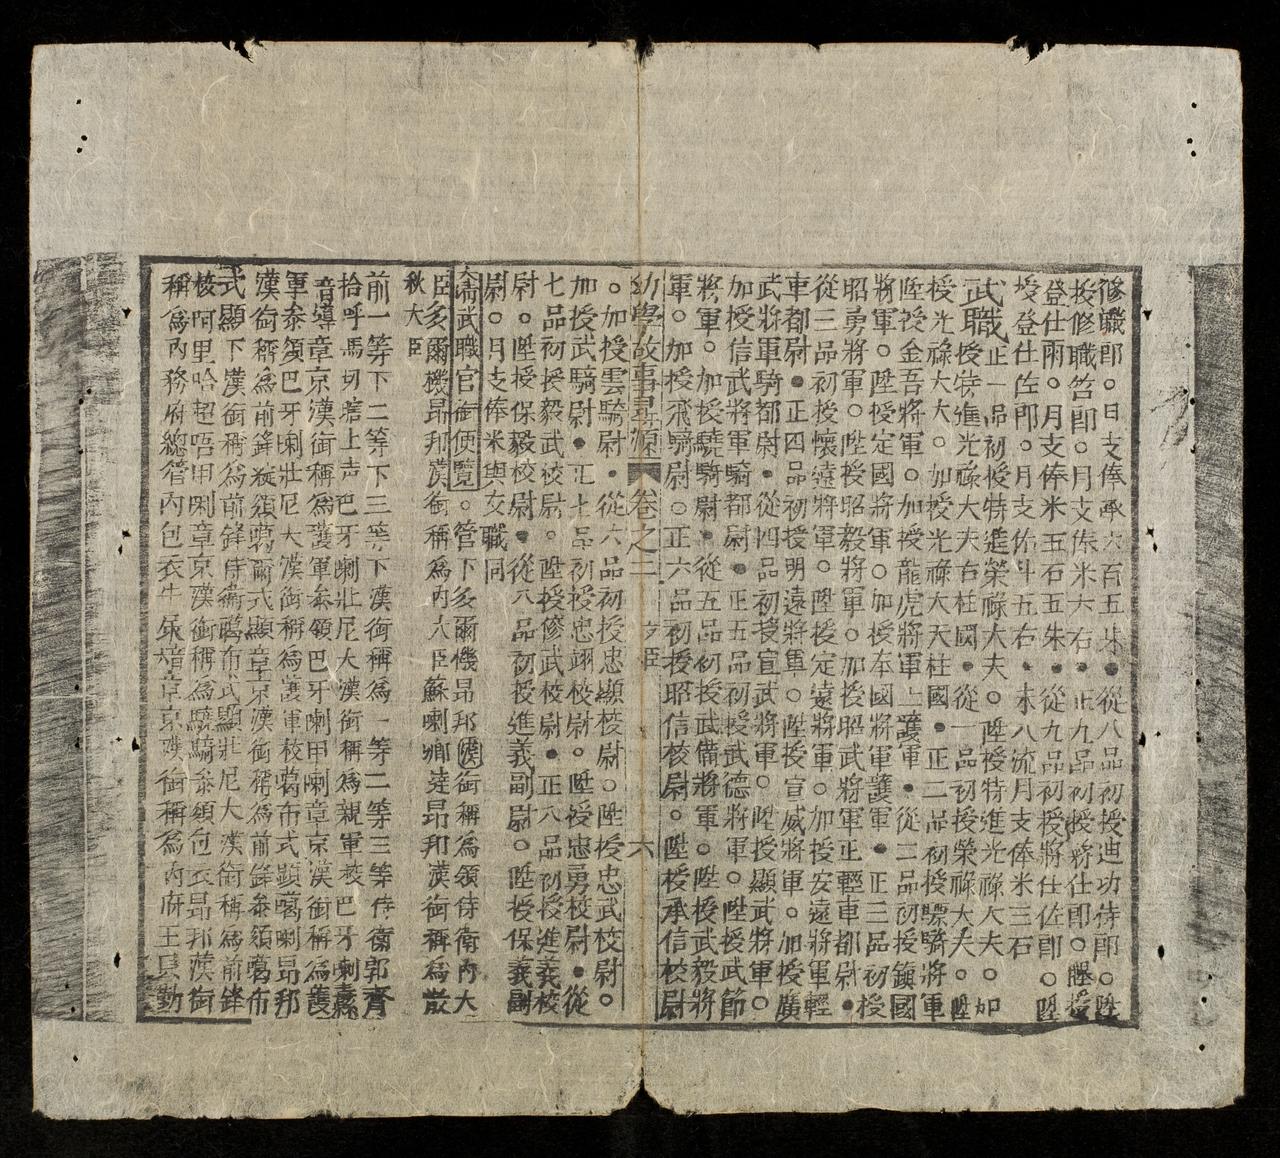 修職郎○日支俸承六百五朱●從八品初授迪功侍郎○陞
授修職答郎○月支俸米六右●正九品初授將仕郎○陞授
登仕兩○月支俸米五石五朱●從九品初授將仕佐郎○陞
授登仕佐郎○月支俸斗五右●未八流月支俸米三石
武職正一品初授特進榮祿大夫○陞授特進光祿大夫○加
授特進光祿大夫右柱國●從一品初授榮祿大夫○陞
授光祿大夫○加授光祿大夫柱國●正二品初授驃騎將軍
陞授金吾將軍○加授龍虎將軍上護軍●從二品初授鎮國
將軍○陞授定國將軍○加授奉國將軍護軍●正三品初授
昭勇將軍○陞授昭毅將軍○加授昭武將軍正輕車都尉●
從三品初授懷遠將軍○陞授定遠將軍○加授安遠將軍輕
車都尉●正四品初授明遠將軍○陞授宣威將軍○加授廣
武將軍騎都尉●從四品初授宣武將軍○陞授顯武將軍○
加授信武將軍騎都尉●正五品初授武德將軍○陞授武節
將軍○加授驍騎尉●從五品初授武備將軍○陞授武毅將
軍○加授飛騎尉○正六品初授昭信校尉○陞授承信校尉
幼學故事尋源 卷之二 文臣 六
○加授雲騎尉●從六品初授忠顯校尉○陞授忠武校尉○
加授武騎尉●正七品初授忠翊校尉○陞授忠勇校尉●從
七品初授毅武校尉○陞授修武校尉●正八品初授進義校
尉○陞授保毅校尉●從八品初授進義副尉○陞授保義副
尉○月支俸米與文職同
武職官銜便覽○管下多爾機昂邦漢銜稱為領侍衛內大
臣多爾機昂邦漢銜稱為內大臣蘇喇卿達昂邦漢銜稱為散
秋大臣
前一等下二等下三等下漢銜稱為一等二等三等侍衛郭齊
拾呼馬切上声巴牙喇壯尼大漢銜稱為親軍校巴牙喇纛
音導章京漢銜稱為護軍叅領巴牙喇甲喇章京漢銜稱為護
軍叅領巴牙喇壯尼大漢銜稱為護軍校葛布式顯噶喇昂邦
漢銜稱為前鋒統領葛布式顯章京漢銜稱為前鋒叅領葛布
式顯下漢銜稱為前鋒侍衛噶布式顯壯尼大漢銜稱為前鋒
校阿里哈超唔甲喇章京漢銜稱為驍騎叅領包衣昂邦漢銜
稱為內務府總管內包衣牛彔章京漢銜稱為內府王貝勒